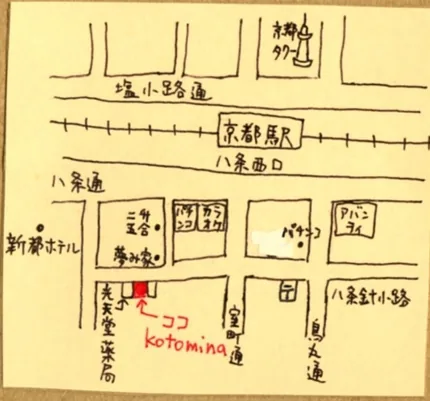 京都
タワー
塩小路通
京都駅
八条西口
八条通
二升
五合
パチ
ンコ
カラ
オケ
パチンコ
アバン
ティ
新都ホテル
夢み家
光天堂薬局
ココ
kotomina
室町通
〒
烏丸通
八条針小路